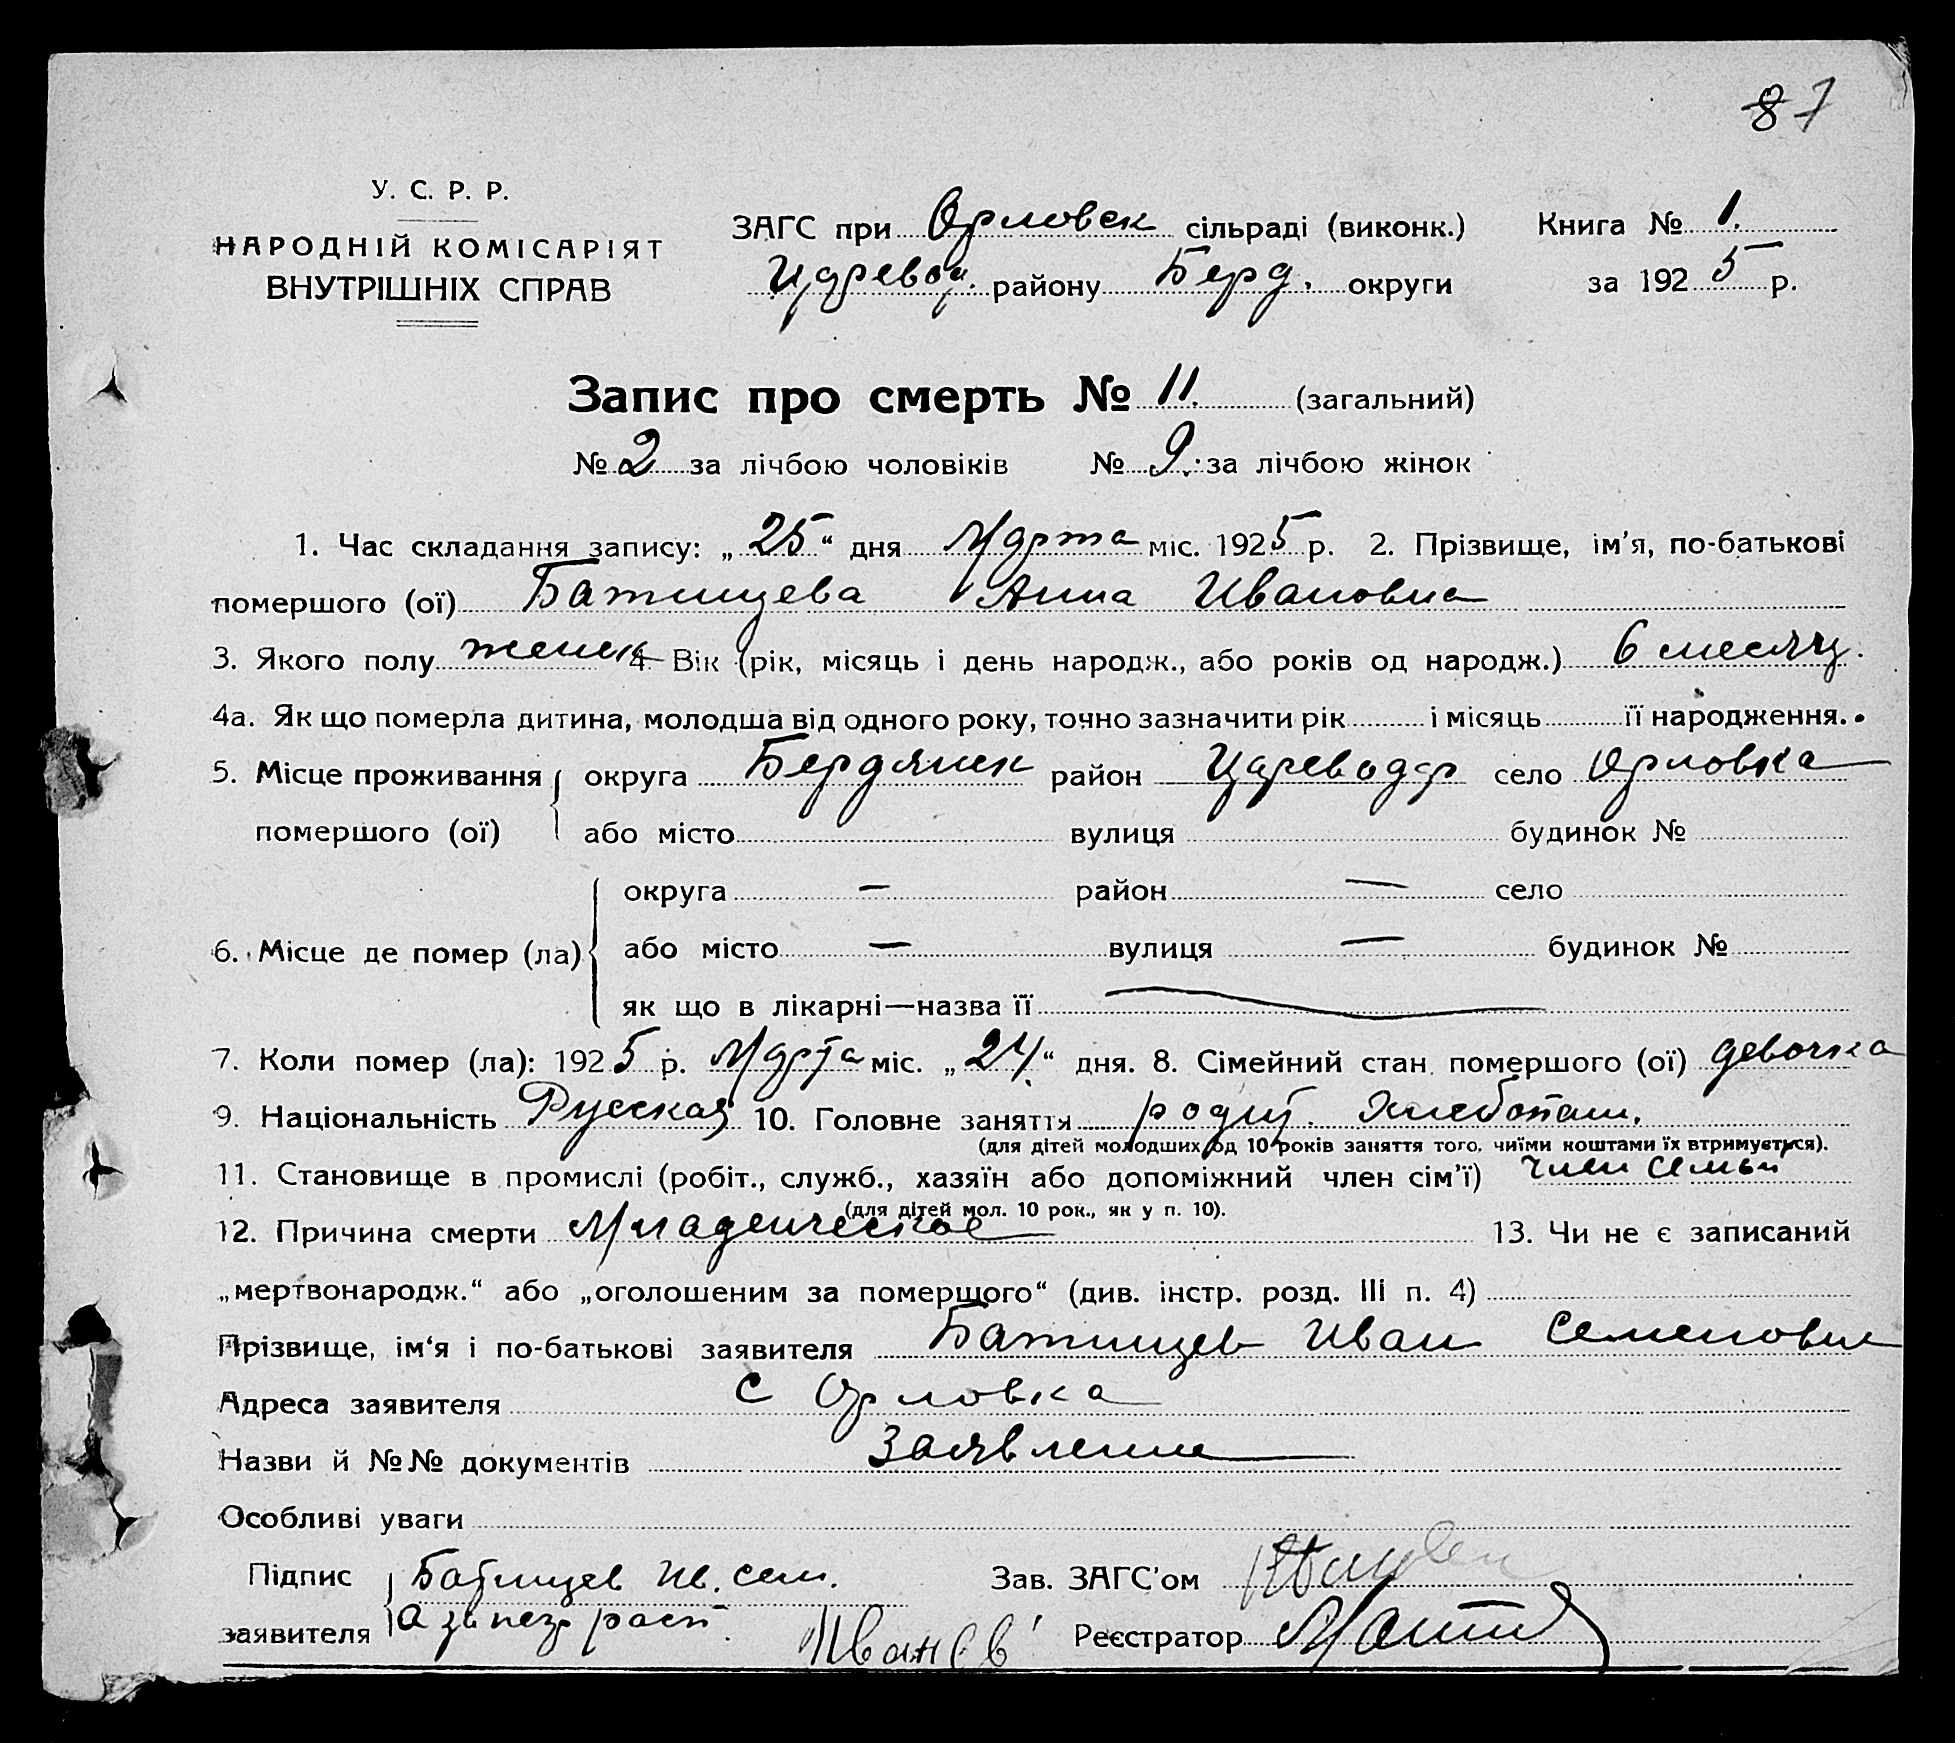 87
У. С. Р. Р.
НАРОДНІЙ КОМІСАРІЯТ
ВНУТРІШНІХ СПРАВ
ЗАГС при Орловск сільраді (виконк.)
Царевод. району Берд. округи
Книга № 1.
за 1925 р.
Запис про смерть № 11. (загальний)
№ 2 за лічбою чоловіків № 9. за лічбою жінок
1. Час складання запису: „25“ дня Марта міс. 1925 р. 2. Прізвище, ім’я, по-батькові
помершого (ої) Батищева Анна Ивановна
3. Якого полу женск 4 Вік (рік, місяць і день народж., або років од народж.) 6 месяц.
4а. Як що померла дитина, молодша від одного року, точно зазначити рік і місяць її народження.
5. Місце проживання округа Бердянск район Цареводар село Орловка
помершого (ої) або місто вулиця будинок №
округа — район — село
6. Місце де помер (ла) або місто — вулиця — будинок №
як що в лікарні—назва її
7. Коли помер (ла): 1925 р. Марта міс. „24“ дня. 8. Сімейний стан помершого (ої) девочка
9. Національність Русская 10. Головне заняття родит. хлебопаш.
(для дітей молодших од 10 років заняття того, чиїми коштами їх втримується).
11. Становище в промислі (робіт., служб., хазяїн або допоміжний член сім’ї) член семьи
(для дітей мол. 10 рок., як у п. 10).
12. Причина смерти Младенческое 13. Чи не є записаний
„мертвонародж.“ або „оголошеним за померщого“ (див. інстр. розд. III п. 4)
Прізвище, ім‘я і по-батькові заявителя Батищев Иван Семенович
Адреса заявителя с Орловка
Назви й №№ документів Заявление
Особливі уваги
Підпис Батищев Ив. Сем. Зав. ЗАГС’ом
заявителя а за негр расп. Иванов Реєстратор